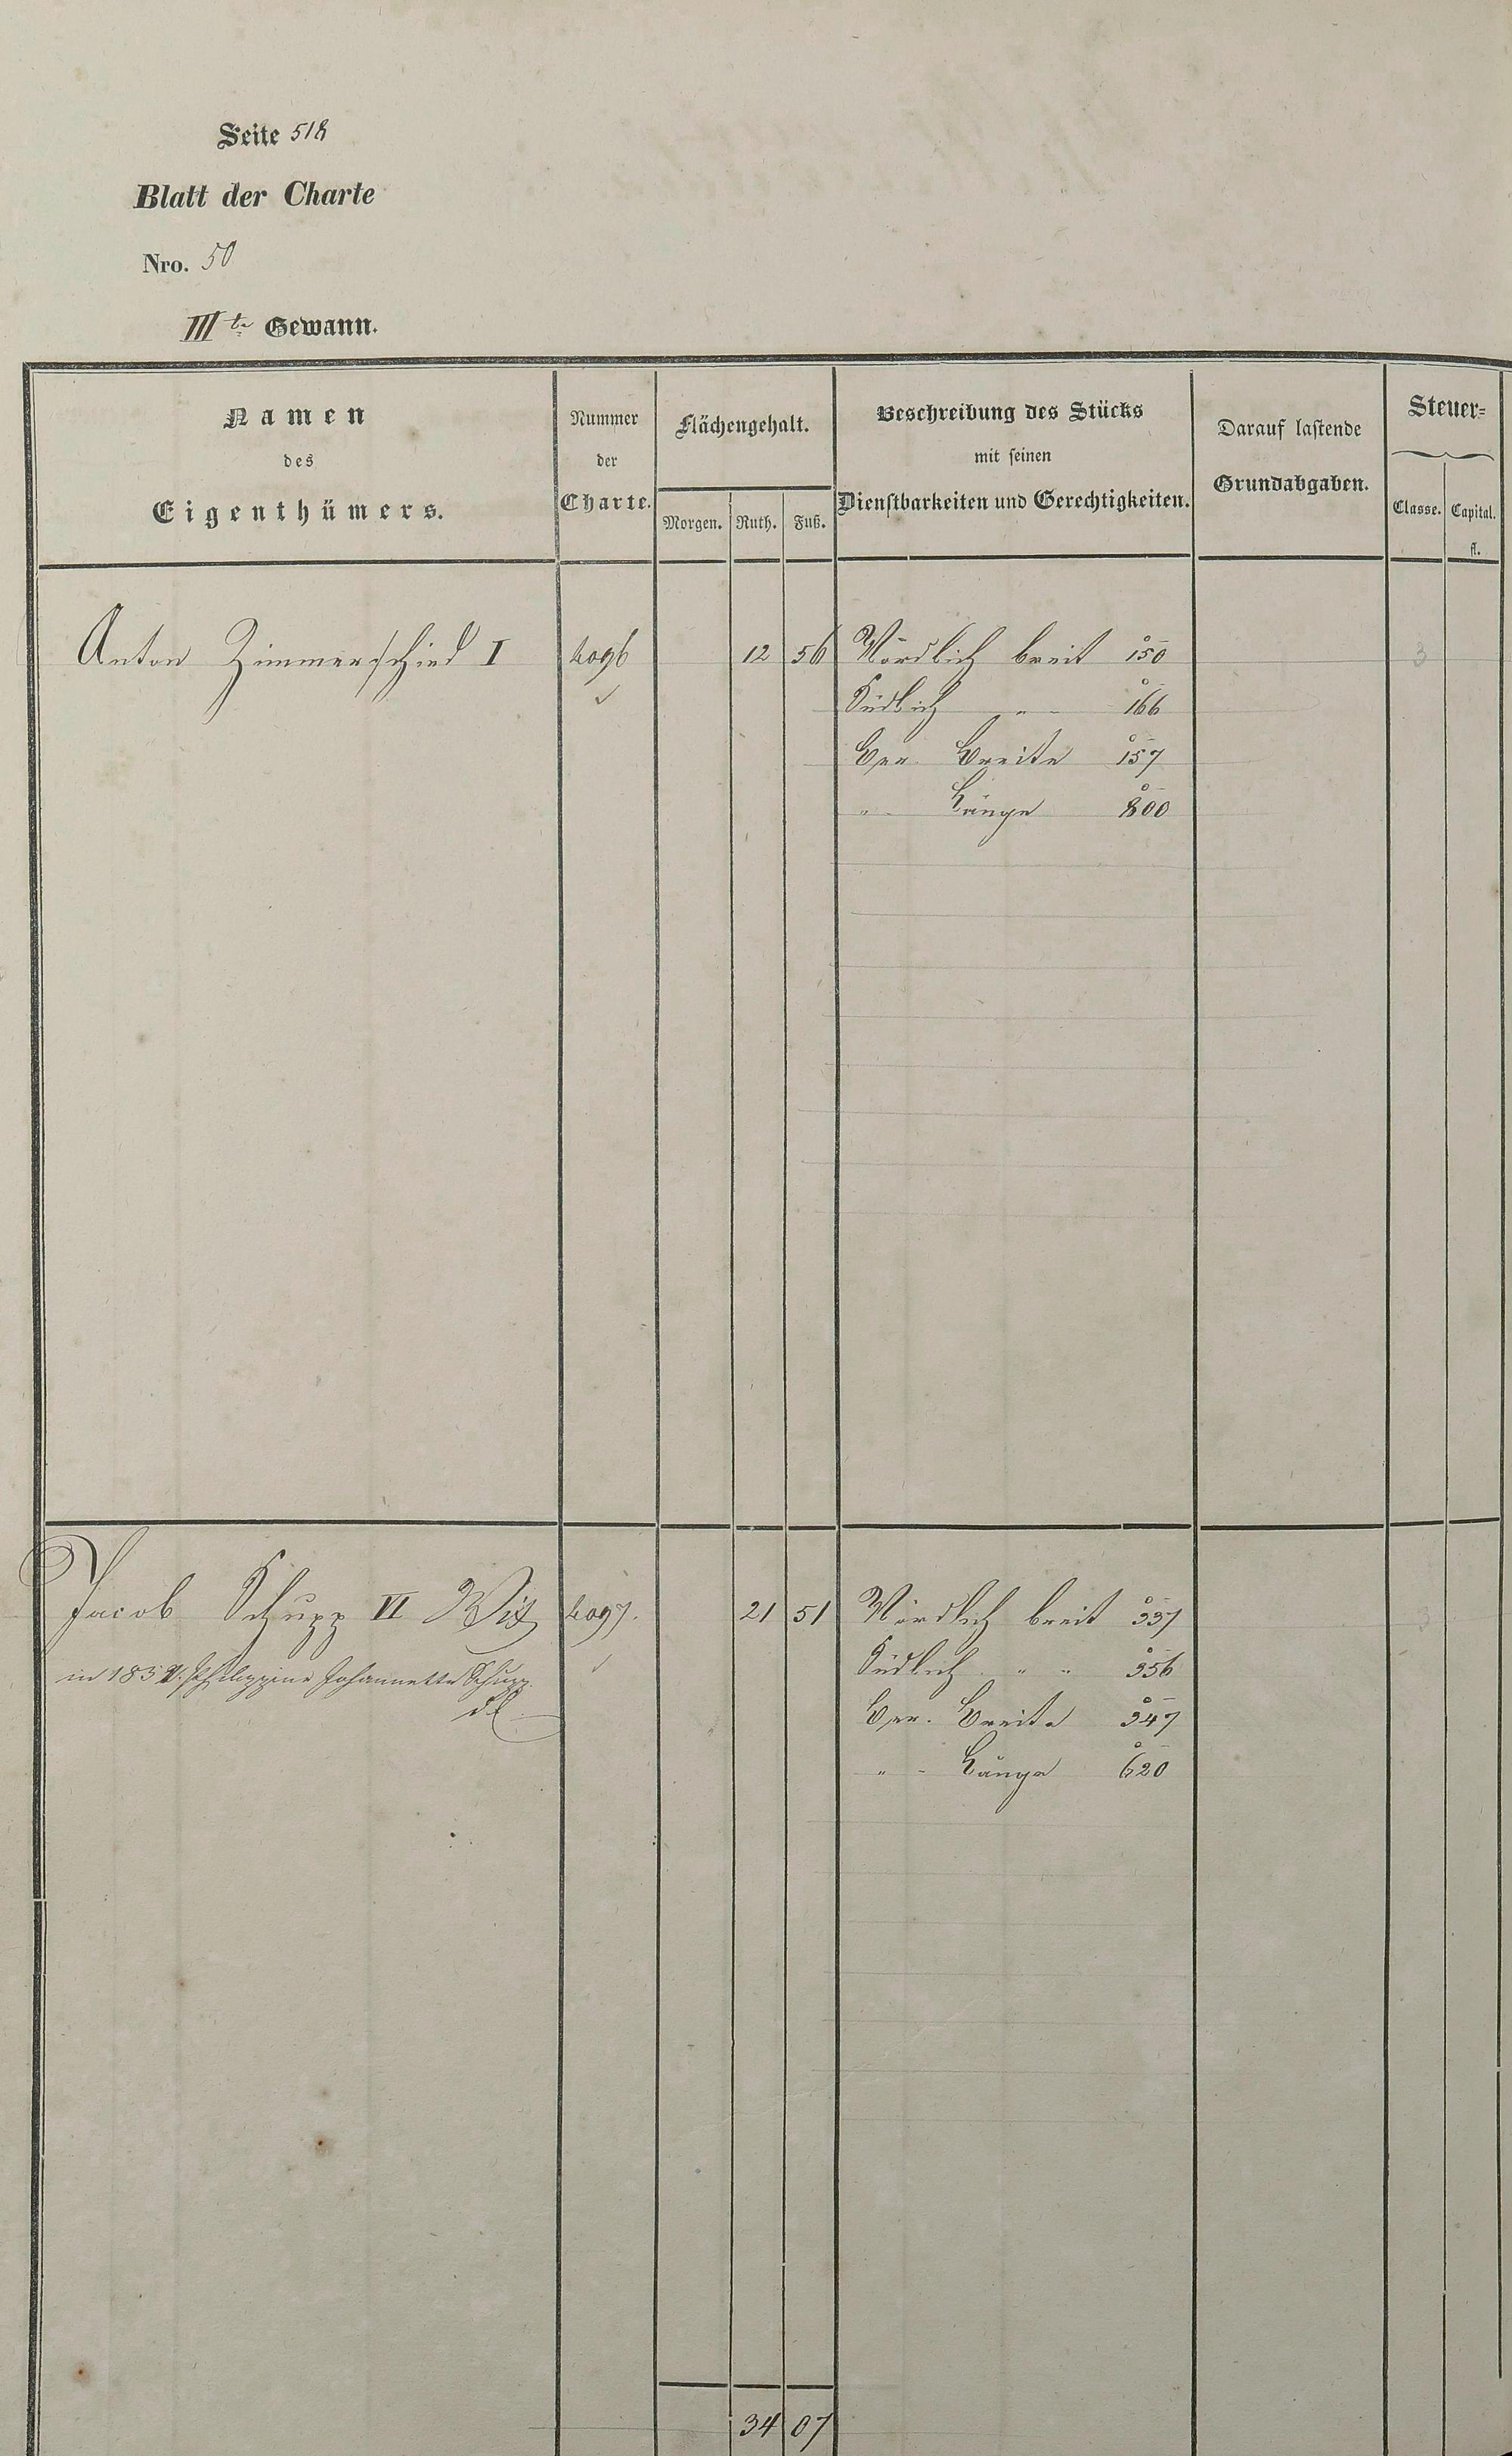 Seite 518
Blatt der Charte
Nro. 50
III te Gewann.
Namen
des
Eigenthümers.
Nummer
der
Charte.
Flächengehalt.
Morgen. Ruth. Fuß.
Beschreibung des Stücks
mit seinen
Dienstbarkeiten und Gerechtigkeiten.
Darauf lastende
Grundabgaben.
Steuer-
Classe. Capital.
fl.
Anton Zimmerschied I 4096 12 56 Nördlich breit 150 3
Südlich " 166
Ger. Breite 157
" Länge 800
Jacob Schupp VI Wit 4097. 21 51 Nördlich breit 337 3
in 185 Philippine Johannette Schupp Südlich " " 356
Ger. Breite 347
" Länge 620
34 07